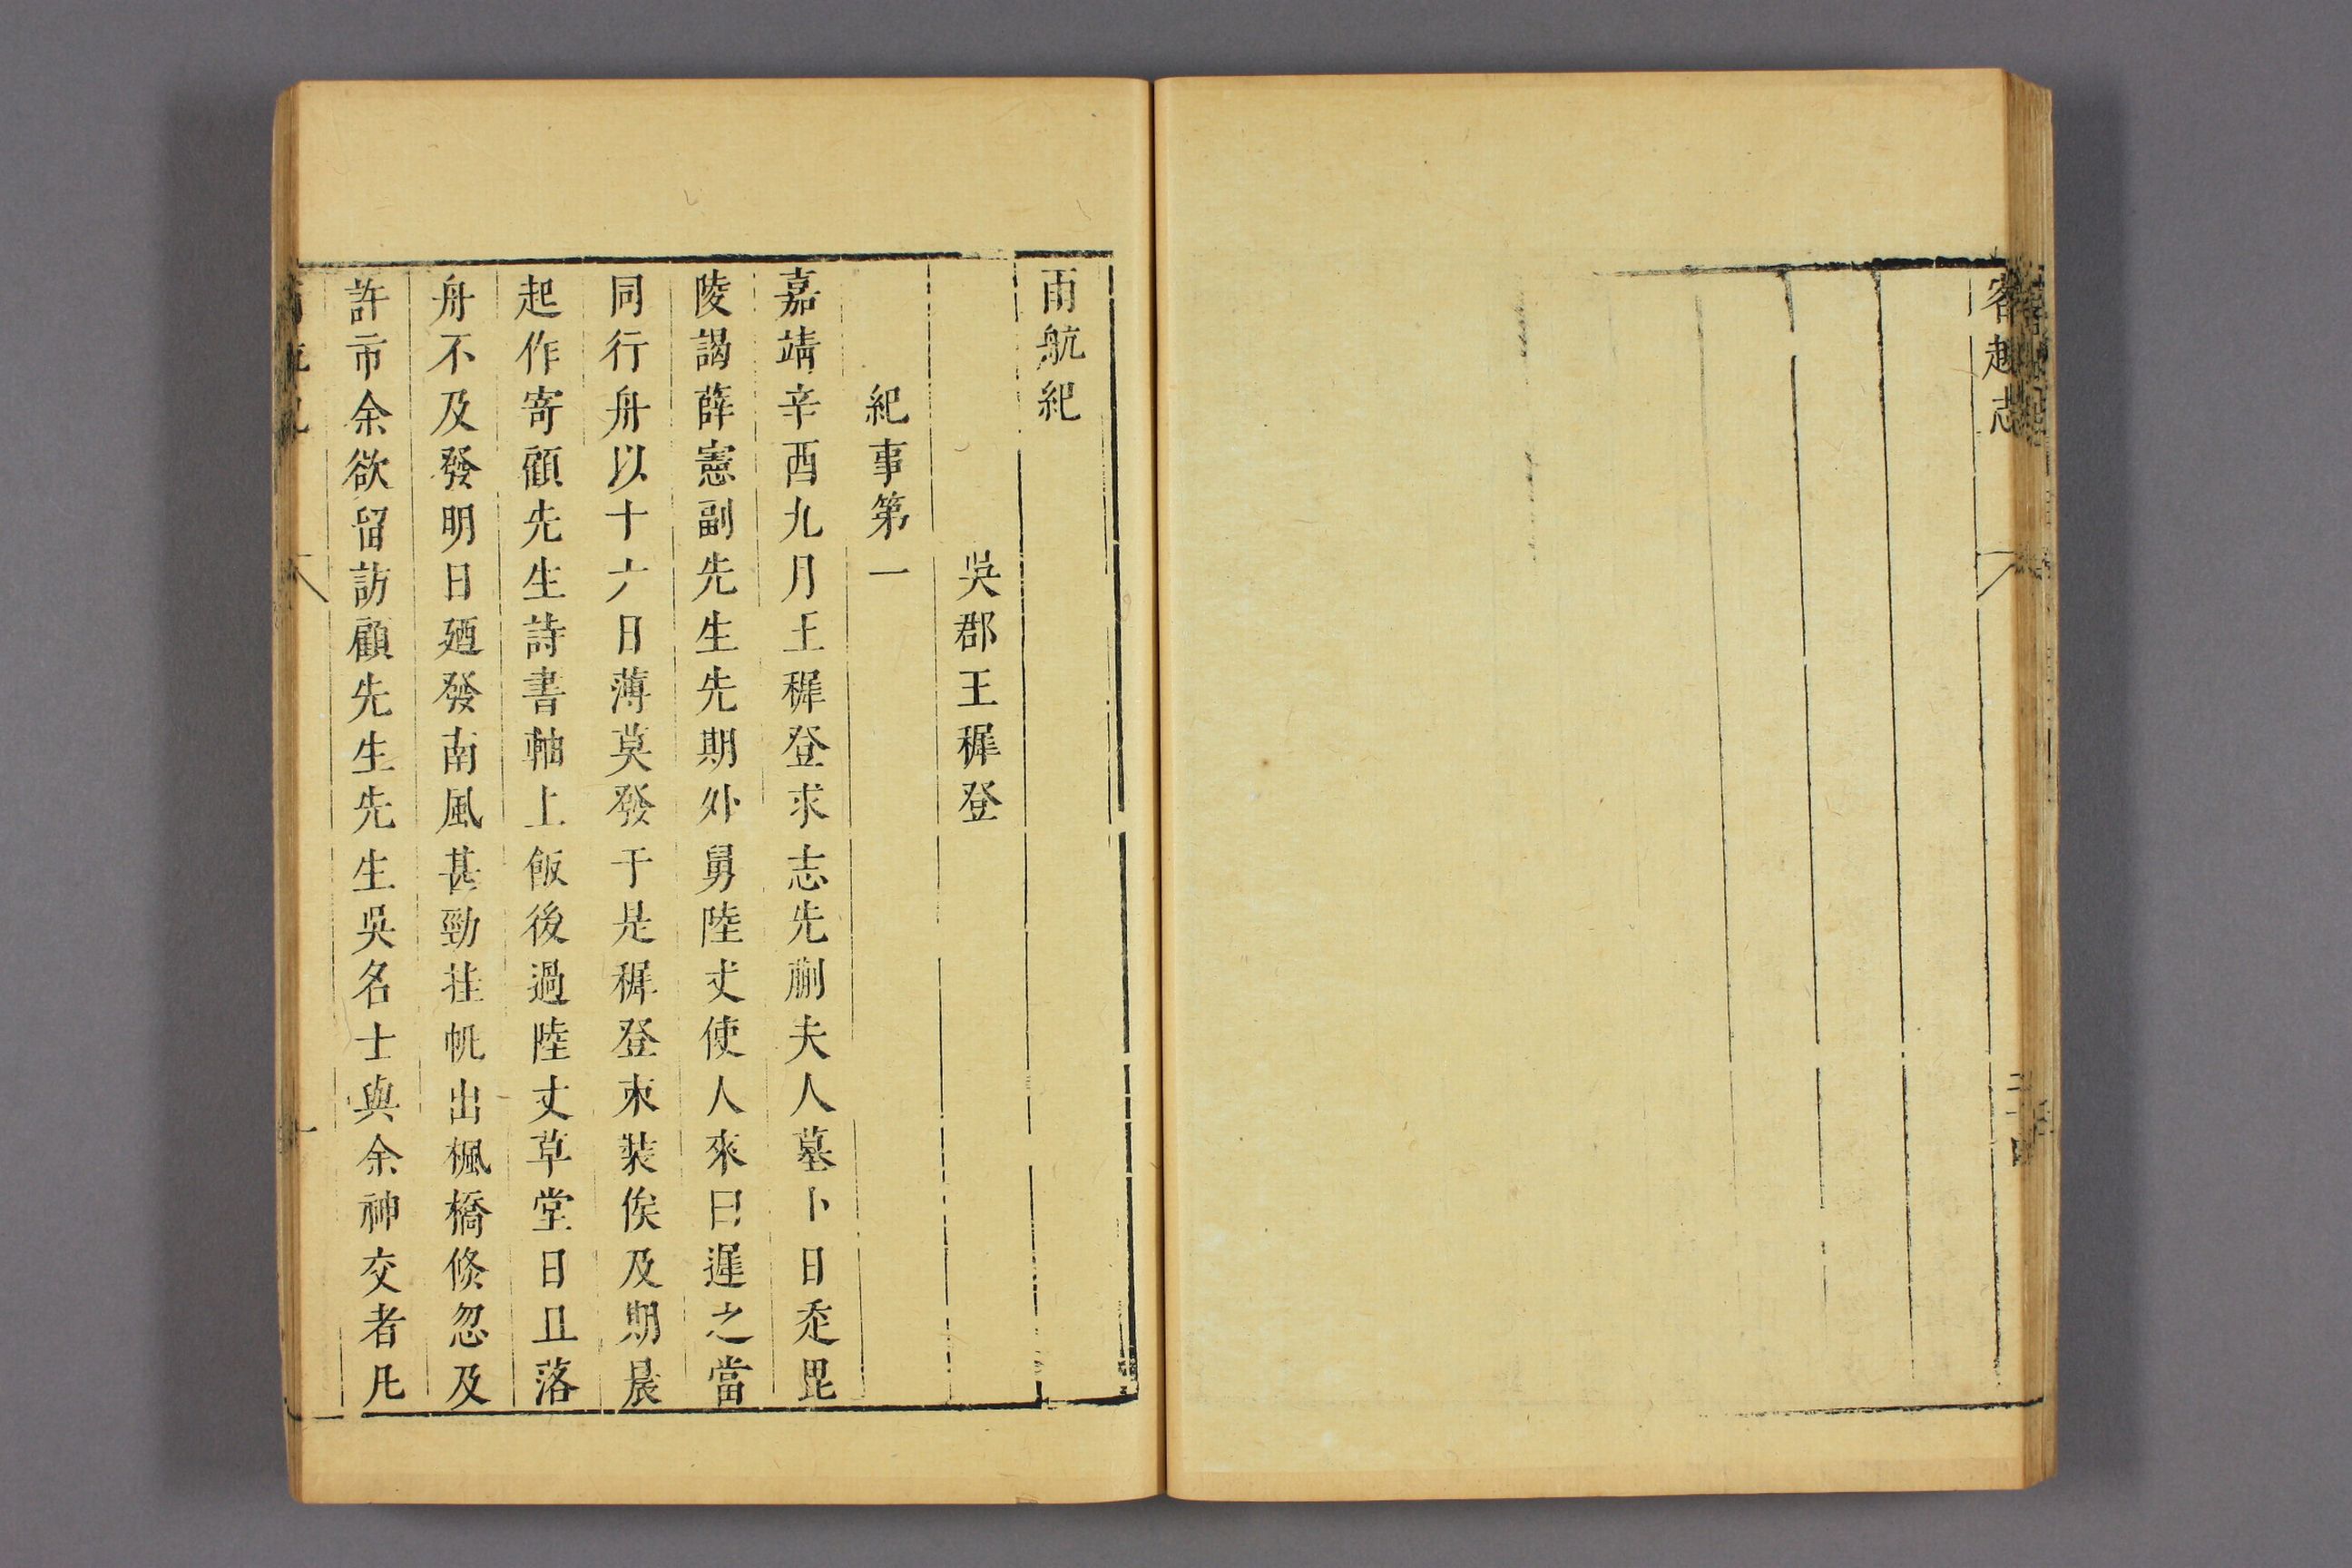 客越志
雨航紀
吳郡王穉登
紀事第一
嘉靖辛酉九月王穉登求志先蒯夫人墓卜日走毘
陵謁薛憲副先生先期外舅陸丈使人來曰遲之當
同行舟以十六日薄莫發于是穉登束裝俟及期晨
起作寄顧先生詩書軸上飯後過陸丈草堂日且落
舟不及發明日廼發南風甚勁挂帆出楓橋倏忽及
許市余欲留訪顧先生先生吳名士與余神交者凡